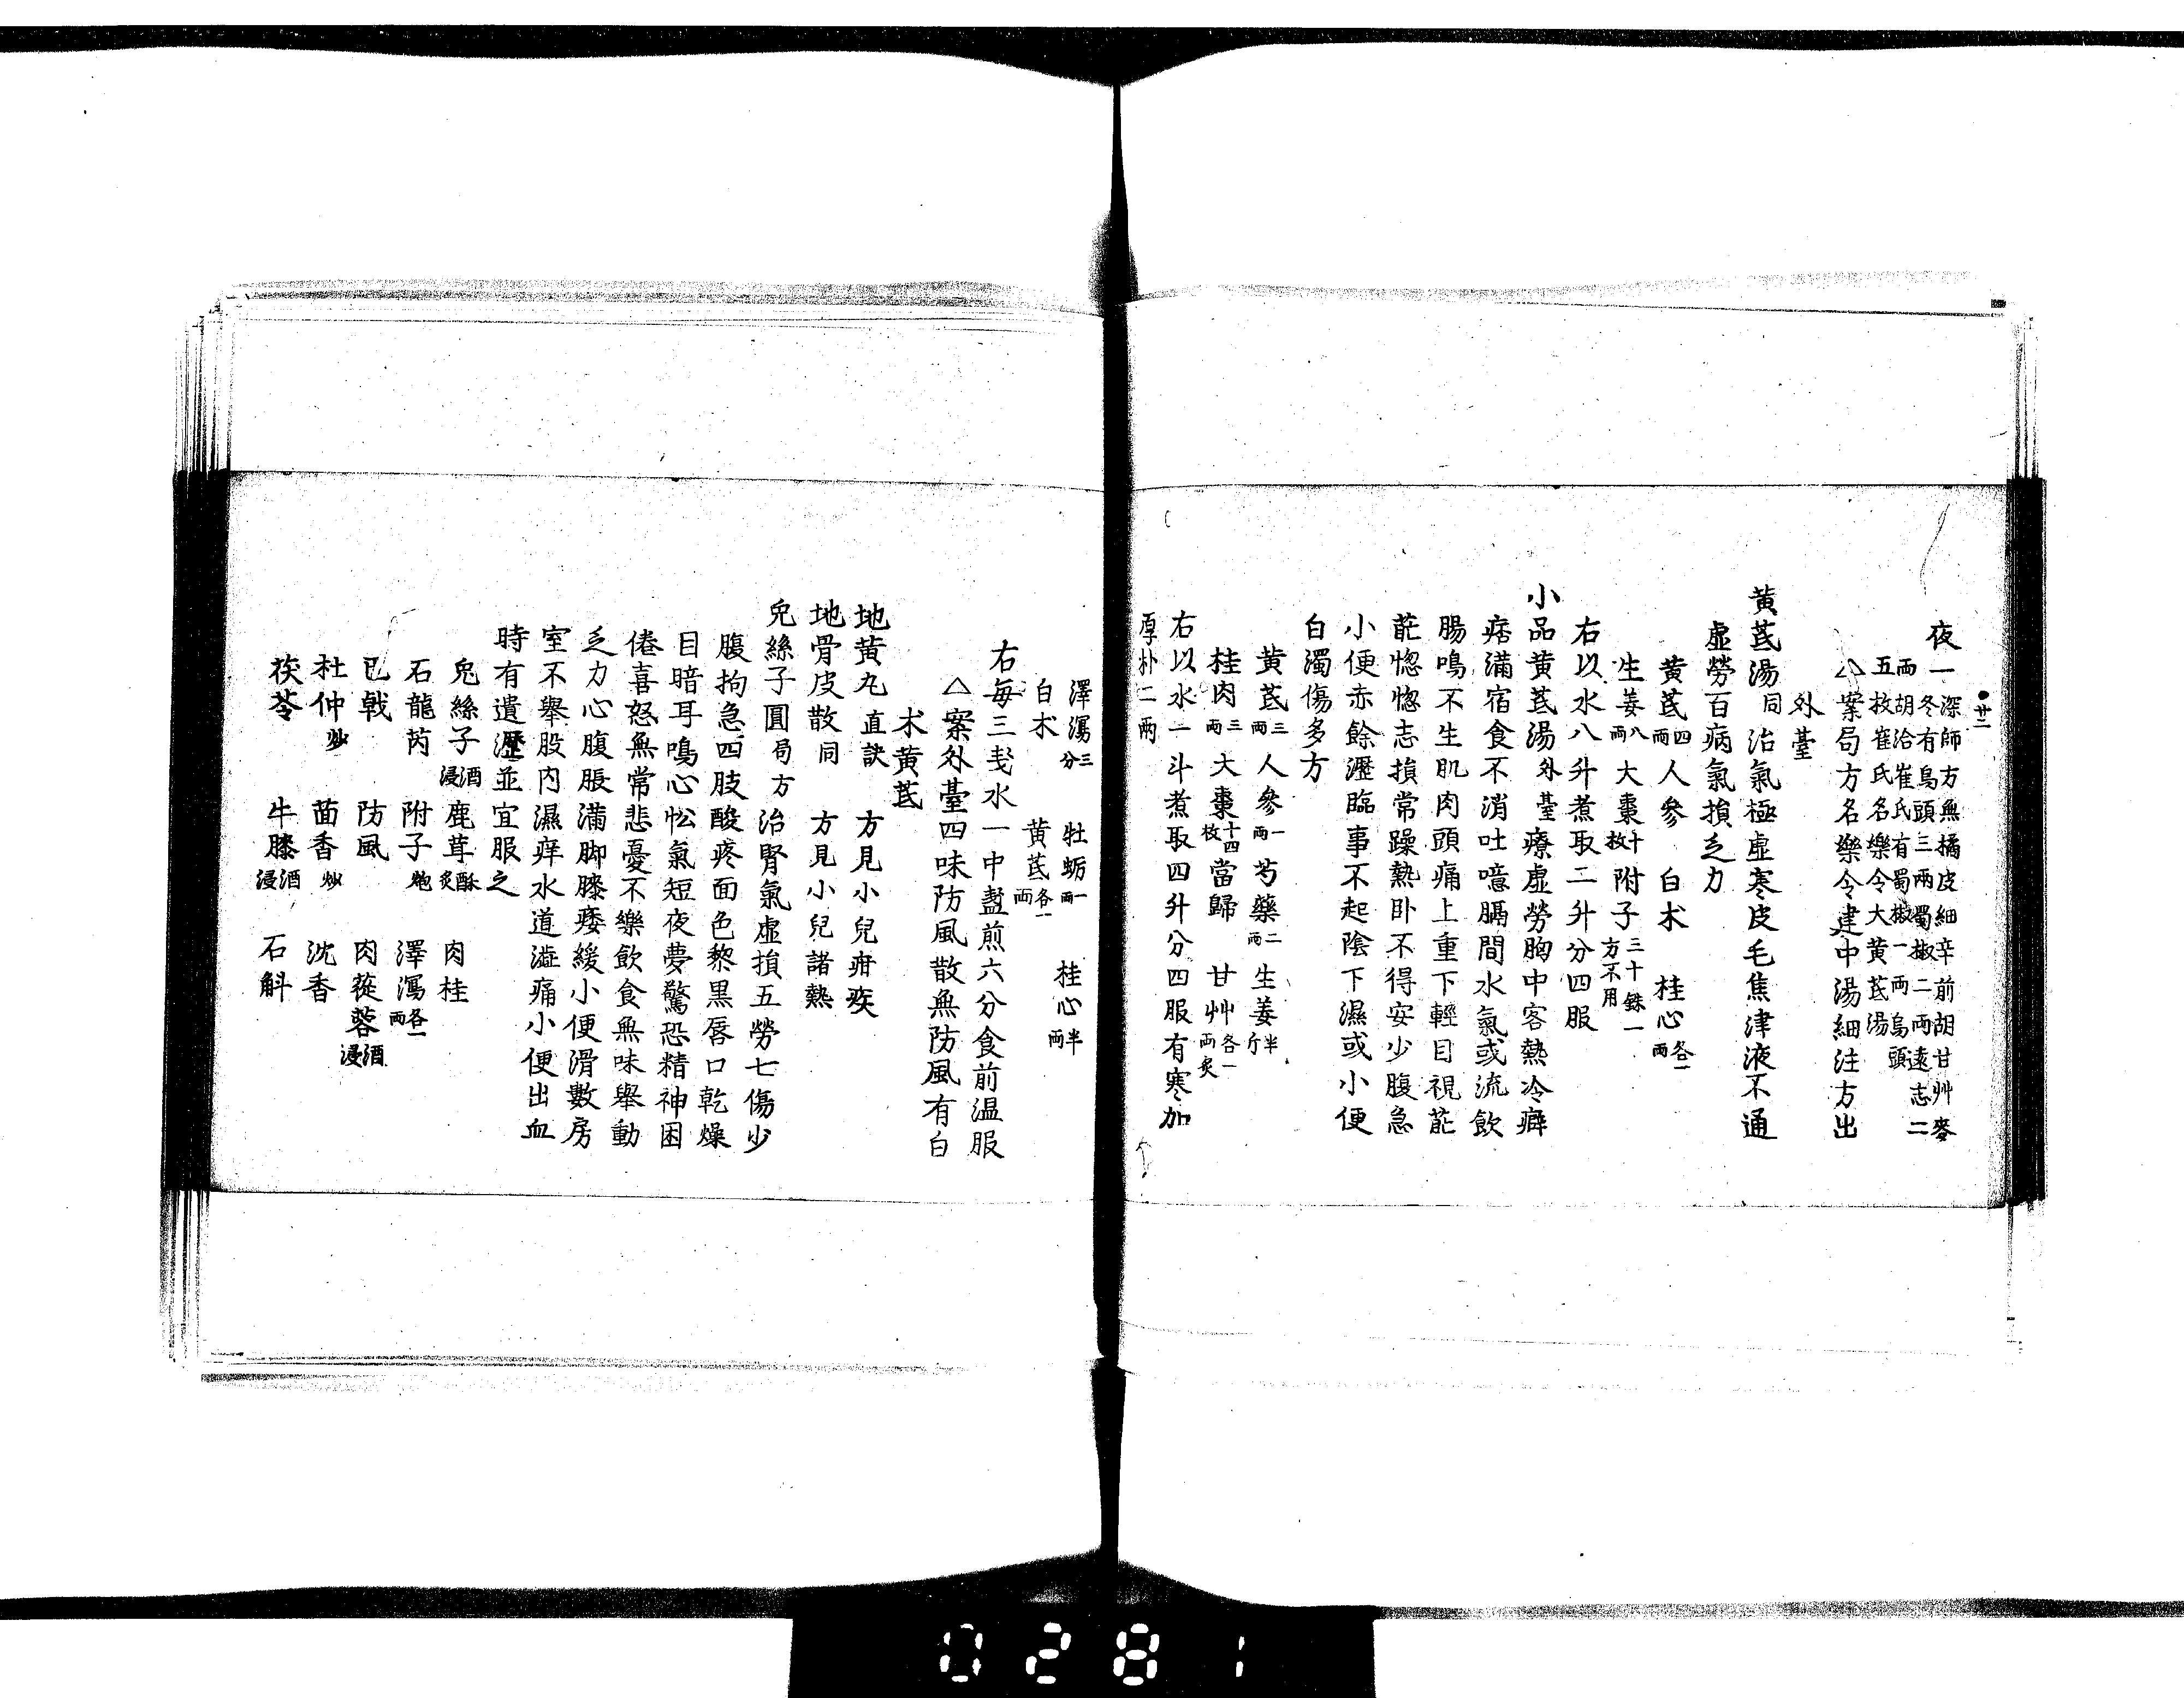 廿二
夜一深師方無橘皮細辛前胡甘艸麥
冬有烏頭三兩蜀椒二兩遠志二
兩胡洽崔氏有蜀椒一兩烏頭
五枚崔氏名樂令大黄芪湯
△案局方名樂令建中湯細注方出
外臺
黄芪湯同治氣極虛寒皮毛焦津液不通
虛勞百病氣損乏力
黄芪四兩人參 白朮 桂心各一兩
生姜八兩大棗十枚附子三十銖一方不用
右以水八升煮取二升分四服
小品黄芪湯外臺療虛勞胸中客熱冷癖
痞滿宿食不消吐噫膈間水氣或流飲
腸鳴不生肌肉頭痛上重下輕目視䀮
䀮惚惚志損常躁熱卧不得安少腹急
小便赤餘瀝臨事不起陰下濕或小便
白濁傷多方
黄芪三兩人參一兩芍藥二兩生姜半斤
桂肉三兩大棗十四枚當歸 甘艸各一兩炙
右以水一斗煮取四升分四服有寒加
厚朴二兩
澤瀉三分 牡蛎一兩 桂心半兩
白朮 黄芪各一兩
右每三戔水一中盞煎六分食前温服
△案外臺四味防風散無防風有白
朮黄芪
地黄丸直訣 方見小兒疳疾
地骨皮散同 方見小兒諸熱
兔絲子圓局方 治腎氣虛損五勞七傷少
腹拘急四肢酸疼面色黎黒唇口乾燥
目暗耳鳴心忪氣短夜夢驚恐精神困
倦喜怒無常悲憂不樂飲食無味舉動
乏力心腹脹滿脚膝痿緩小便滑數房
室不舉股内濕痒水道澁痛小便出血
時有遺瀝並宜服之
兔絲子酒浸 鹿茸酥炙 肉桂
石龍芮 附子炮 澤瀉各一兩
巴戟 防風 肉蓯蓉酒浸
杜仲炒 茴香炒 沈香
茯苓 牛膝酒浸 石斛
0281